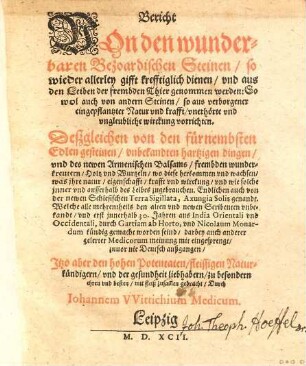 Bericht
VOn den wunder-
baren Bezoardischen Steinen / so
wieder allerley gifft krefftiglich dienen / vnd aus
den Leiben der frembden Thier genommen werden: So
wol auch von andern Steinen / so aus verborgener
eingepflantzter Natur vnd krafft / vnerhörte vnd
vngleubliche wirckung vorrichten.
Deßgleichen von den fürnembsten
Edlen gesteinen / vnbekandten hartzigen dingen /
vnd des newen Armenischen Balsams / frembden wunder-
kreutern / Holtz vnd Wurtzeln / wo diese herkommen vnd wachsen /
was ihre natur / eigenschafft / krafft vnd wirckung / vnd wie solche
inner vnd ausserhalb des leibes zugebrauchen. Endlichen auch von
der newen Schlesischen Terra Sigillata, Axungia Solis genandt.
Welche alle mehrentheils den alten vnd newen Scribenten vnbe-
kandt / vnd erst innerhalb 30. Jahren aus India Orientali vnd
Occidentali, durch Gartiam ab Horto, vnd Nicolaum Monar-
dum kündig gemacht worden seind / darbey auch anderer
gelerter Medicorum meinung mit eingesprengt /
zuuor nie Deutsch außgangen /
Itzo aber den hohen Potentaten / fleissigen Natur-
kündigern / vnd der gesundheit liebhabern / zu besondern
ehren vnd besten / mit fleiß zusamen gebracht / Durch
Johannem VVittichium Medicum.
Leipzig
Joh. Theoph. Hoeffel
M. D. XCII.